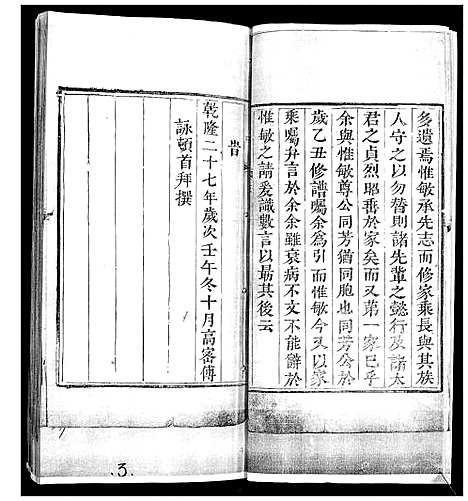 多遺焉惟敏承先志而修家乘長與其族
人守之以勿替則諸先輩之懿行及諸太
君之貞烈昭垂於家矣而又第一家已乎
余與惟敏尊公同芳猶同胞也同芳公於
歲乙丑修譜囑余為引而惟敏今又以家
乘囑弁言於余余雖衰病不文不能辭於
惟敏之請爰識數言以勗其後云
旹
乾隆二十七年歲次壬午冬十月高客傳
詠頓首拜撰
3.